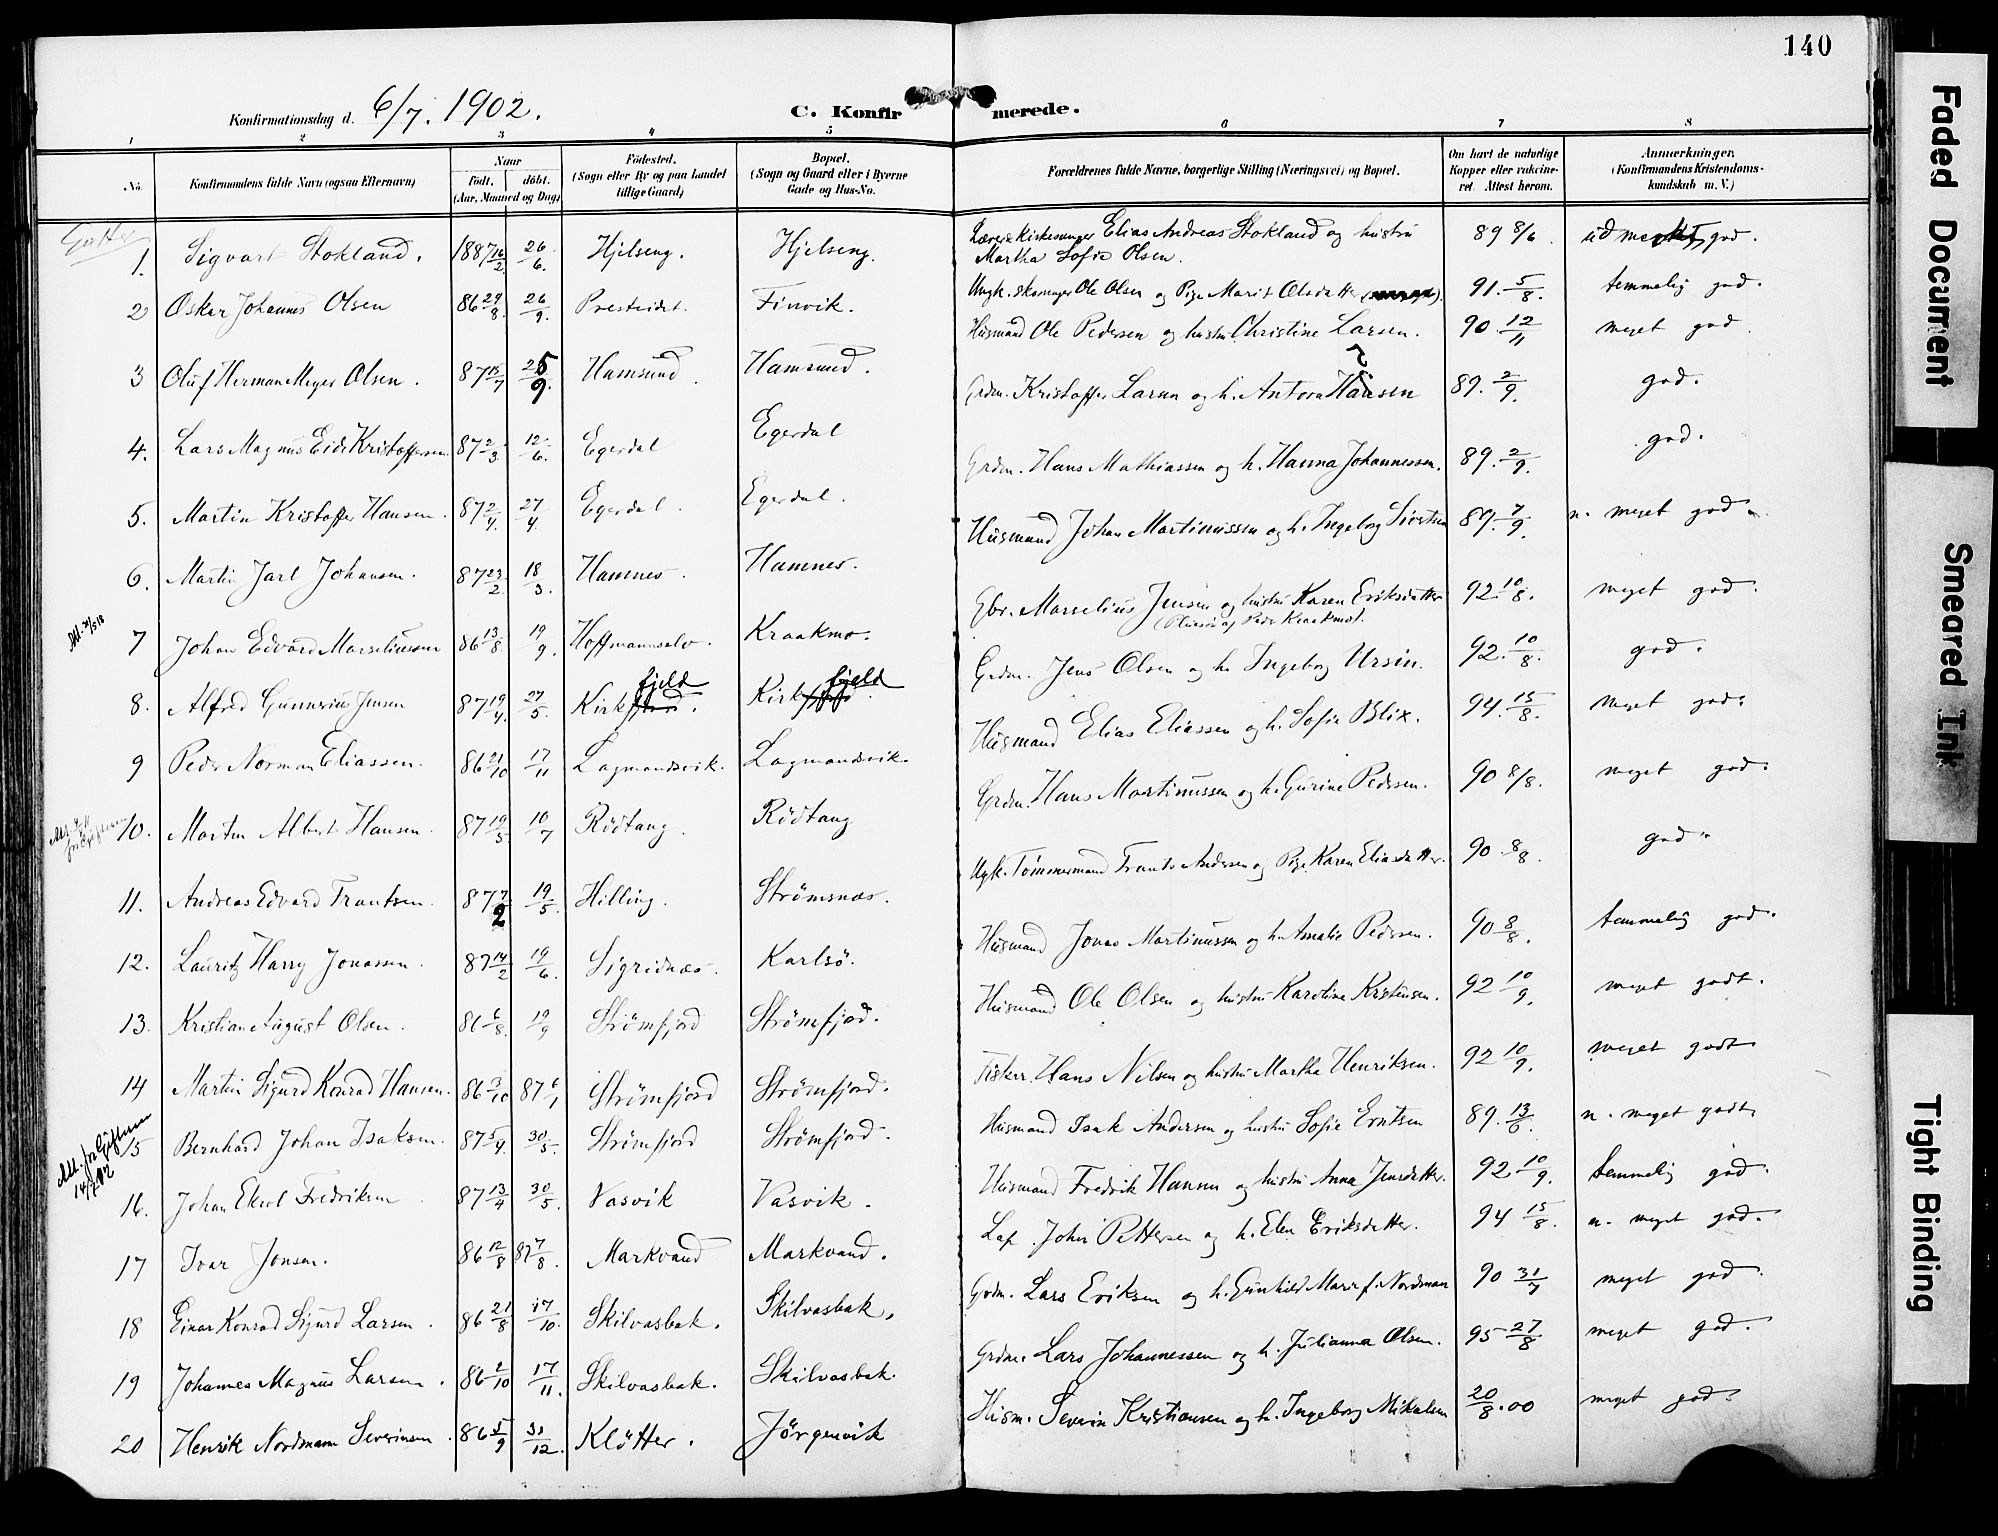 140
Konfirmationsdag d. 6/7. 1902.
C. Konfirmerede.
1 2 3 4 5 6 7 8
No. Konfirmandens fulde Navn (ogsaa Efternavn) Naar Født. døbt. (Aar, Maaned og Dag) Fødested. (Sogn eller By og paa Landet tillige Gaard) Bopæl. (Sogn og Gaard eller i Byerne Gade og Hus-No. Forældrenes fulde Navne, borgerlige Stilling (Næringsvei) og Bopæl. Om havt de naturlige Kopper eller vakcineret. Attest herom. Anmærkninger. (Konfirmandens Kristendomskundskab m. V.)
Gutter
1. Sigvart Stokland. 1887 16/2 26/6. Hjelseng. Hjelseng. Lærer & Kirkesanger Elias Andreas Stokland og hustru Martha Sofie Olsen. 89 8/6. udmerket god.
2 Oskar Johannes Olsen 86 29/8. 26/9. Presteidet. Finvik. Ungk. skomager Ole Olsen og Pige Marit Olsdatter 91. 5/8. temmelig god.
3 Oluf Herman Meyer Olsen. 87 15/7 25/9. Hamsund. Hamsund. Husmand Ole Pedersen og hustru Christine Larsen. 90. 12/11 meget god.
4. Lars Magnus Eide Kristoffersen 87 2/3. 12/6. Egerdal Egerdal Grdm. Kristoffer Larsen og h. Antora Hansen 89. 2/9. god.
5. Martin Kristoffer Hansen. 87 2/4. 27/4. Egerdal. Egerdal. Grdm. Hans Mathiassen og h. Hanna Johannessen. 89. 2/9. god.
6. Martin Jarl Johansen. 87 23/2. 18/3. Hamnes. Hamnes. Husmand Johan Martinussen og h. Ingeborg Sivertsen 89. 7/9. n. meget god.
7 Johan Edvard Marseliussen 86 13/8 19/9. Hoffmannselv. Kraakmo. Gbr. Marselius Jensen og hustru Karen Eriksdatter 92. 10/8. meget god.
8. Alfred Gunnerius Jensen 87 19/4. 27/5. Kirkfjeld. Kirkfjeld. Grdm. Jens Olsen og h. Ingeborg Ursin. 92. 10/8. god.
9 Peder Norman Eliassen. 86 21/10 17/11 Lagmandsvik. Lagmandsvik. Husmand Elias Eliassen og h. Sofie Blix. 94. 15/8. meget god.
10. Morten Albert Hansen. 87 19/5. 10/7 Rödtang. Rödtang Grdm. Hans Martinussen og h. Gurine Pedersen. 90 8/8. meget god.
11. Andreas Edvard Frantsen. 87 7/2 19/5. Hilling. Strömsnæs. Ugk. Tömmermand Frants Andersen og Pige Karen Eliasdatter. 90. 8/8. god.
12. Lauritz Harry Jonassen. 87 14/2 19/6. Sigridnæs. Karlsö. Husmand Jonas Martinussen og h. Amalie Pedersen. 90 8/8. temmelig god.
13. Kristian August Olsen. 86 6/8. 19/9 Strömfjord Strömfjord. Husmand Ole Olsen og hustru Karoline Kristensen. 92 10/9. meget godt.
14 Martin Sigurd Konrad Hansen. 86 3/10 87 6/1 Strömfjord Strömfjord. Fisker. Hans Nilsen og hustru Martha Henriksen. 92 10/9. meget godt
Att. for Giftermaal 14/7 12
15 Bernhard Johan Isaksen. 87 5/4. 30/5. Strömfjord Strömfjord. Husmand Isak Andersen og hustru Sofie Erntsen 89. 13/6. n. meget godt.
16. Johan Ekerl Fredriksen 87 13/4 30/5. Vasvik Vasvik. Husmand Fredrik Hansen og hustru Anna Jensdatter. 92 10/9. temmelig god.
17 Ivar Jonsen. 86 12/8 87 7/8. Markvand Markvand. Lap. John Pettersen og h. Elen Eriksdatter. 94 15/8. n. meget god.
18 Einar Konrad Sigurd Larsen. 86 21/8 17/10. Skilvasbak. Skilvasbak. Grdm. Lars Eriksen og h. Gunhild Marie f. Nordman 90 31/7 meget god.
19 Johannes Magnus Larsen. 86 2/10 17/11. Skilvasbak. Skilvasbak. Grdm. Lars Johannessen og h. Julianna Olsen. 95 27/8 meget god.
20 Henrik Nordmann Severinsen. 86 5/9 31/12. Klötter. Jörgenvik Husm. Severin Kristiansen og h. Ingeborg Mikalsen 20/8.00 meget god.
Faded Document
Smeared Ink
Tight Binding